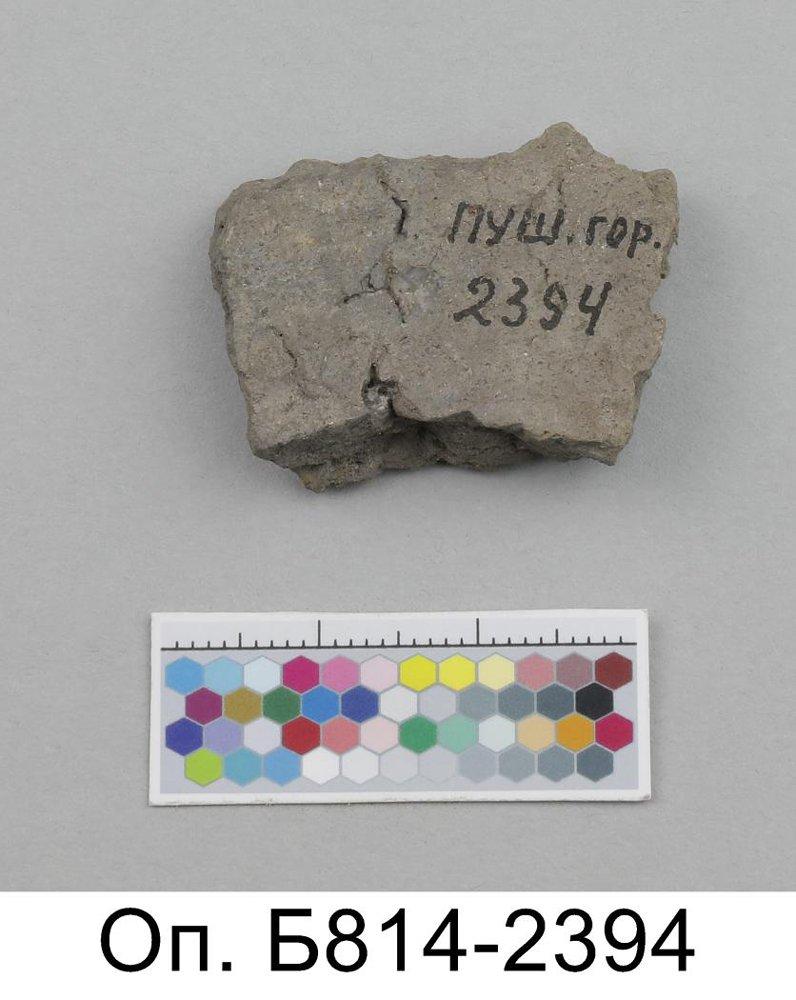 ПУШ.гор.
2394
Оп. Б814-2394